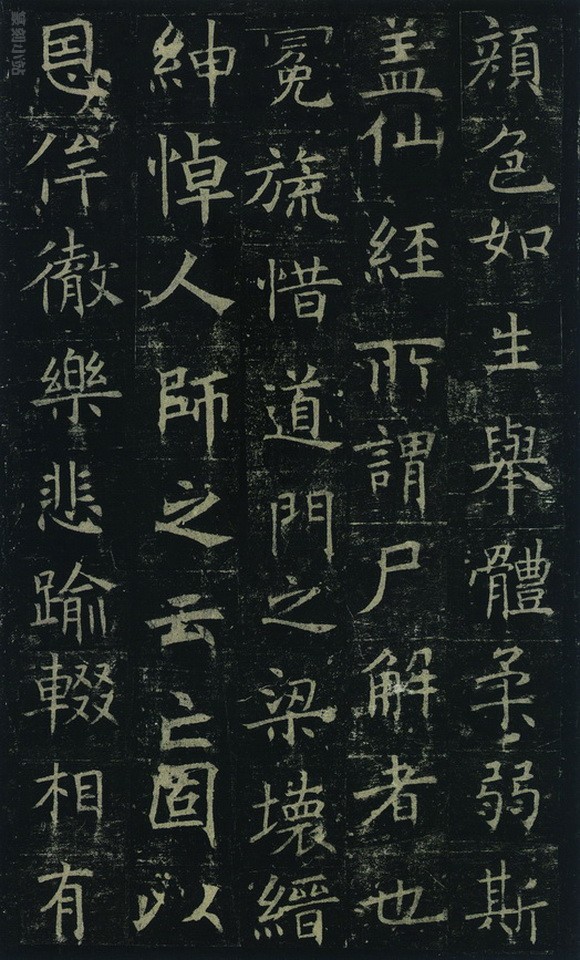 顔色如生舉體柔弱斯
盖仙經所謂尸解者也
冕旒惜道門之梁壞縉
紳悼人師之云亡固以
恩侔徹樂悲踰輟相有
篆刻小站